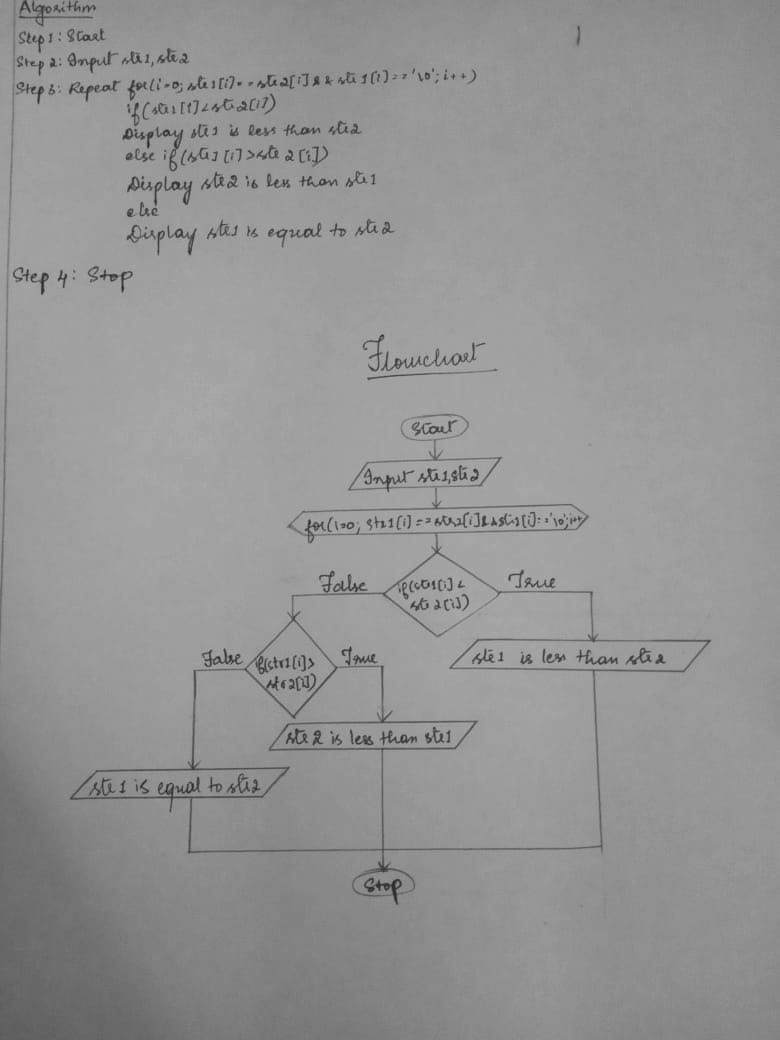 Algorithm
Step 1: Start
Step 2: Input str1, str2
Step 3: Repeat for(i=0; str1[i]==str2[i]&&str1[i]=='\0'; i++)
if(str1[i]<str2[i])
Display str1 is less than str2
else if(str1[i]>str2[i])
Display str2 is less than str1
else
Display str1 is equal to str2
Step 4: Stop
Flowchart
Start
Input str1,str2
for(i=0; str1[i]==str2[i]&&str1[i]=='\0';i++
False
if(str1[i]<
str2[i])
True
False
if(str1[i]>
str2[i])
True
str1 is less than str2
str2 is less than str1
str1 is equal to str2
Stop